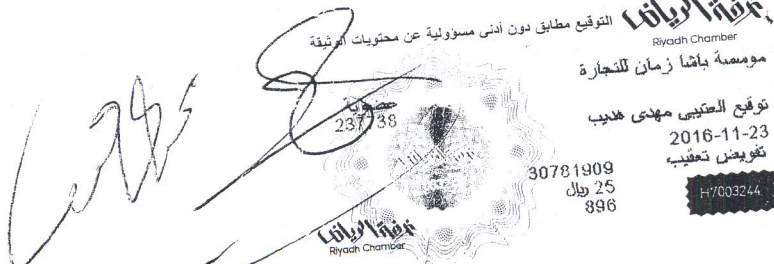 غرفة الرياض
Riyadh Chamber
التوقيع مطابق دون أدنى مسؤولية عن محتويات الوثيقة
موسسة باشا زمان للتجارة
توقيع العتيبي مهدى هديب
2016-11-23
تفويض تعقيب
30781909
25 ريال
896
H7003244
عضوية
غرفة الرياض
Riyadh Chamber